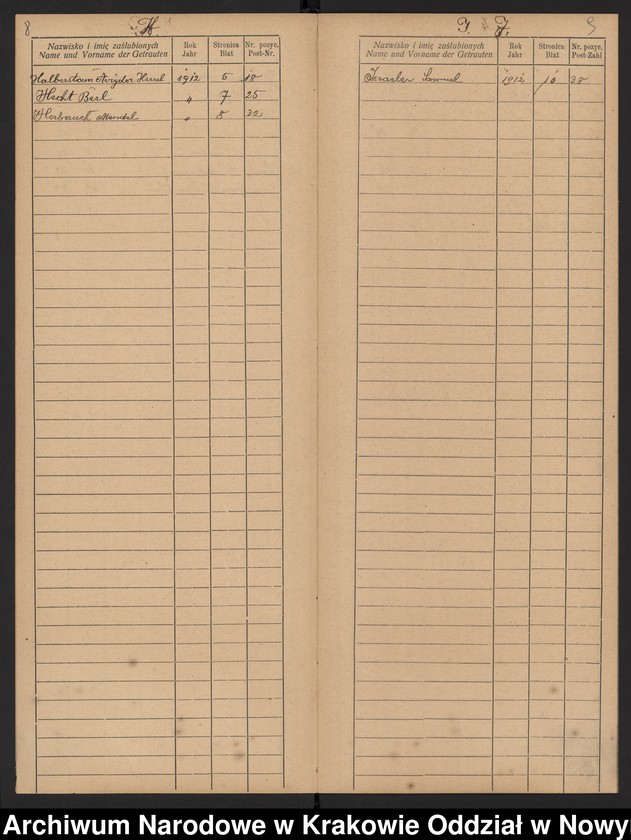 8
H.
Nazwisko i imię zaślubionych
Name und Vorname der Getrauten
Rok
Jahr
Stronica
Blat
Nr. pozyc.
Post-Nr.
Halberstam Avigdor Hersel 1912 5 18
Hecht Berl " 7 25
Herbauch Mendel " 8 32
I. J.
9
Nazwisko i imię zaślubionych
Name und Vorname der Getrauten
Rok
Jahr
Stronica
Blat
Nr. pozyc.
Post-Zahl
Samuel 1912 10 38
Archiwum Narodowe w Krakowie Oddział w Nowy